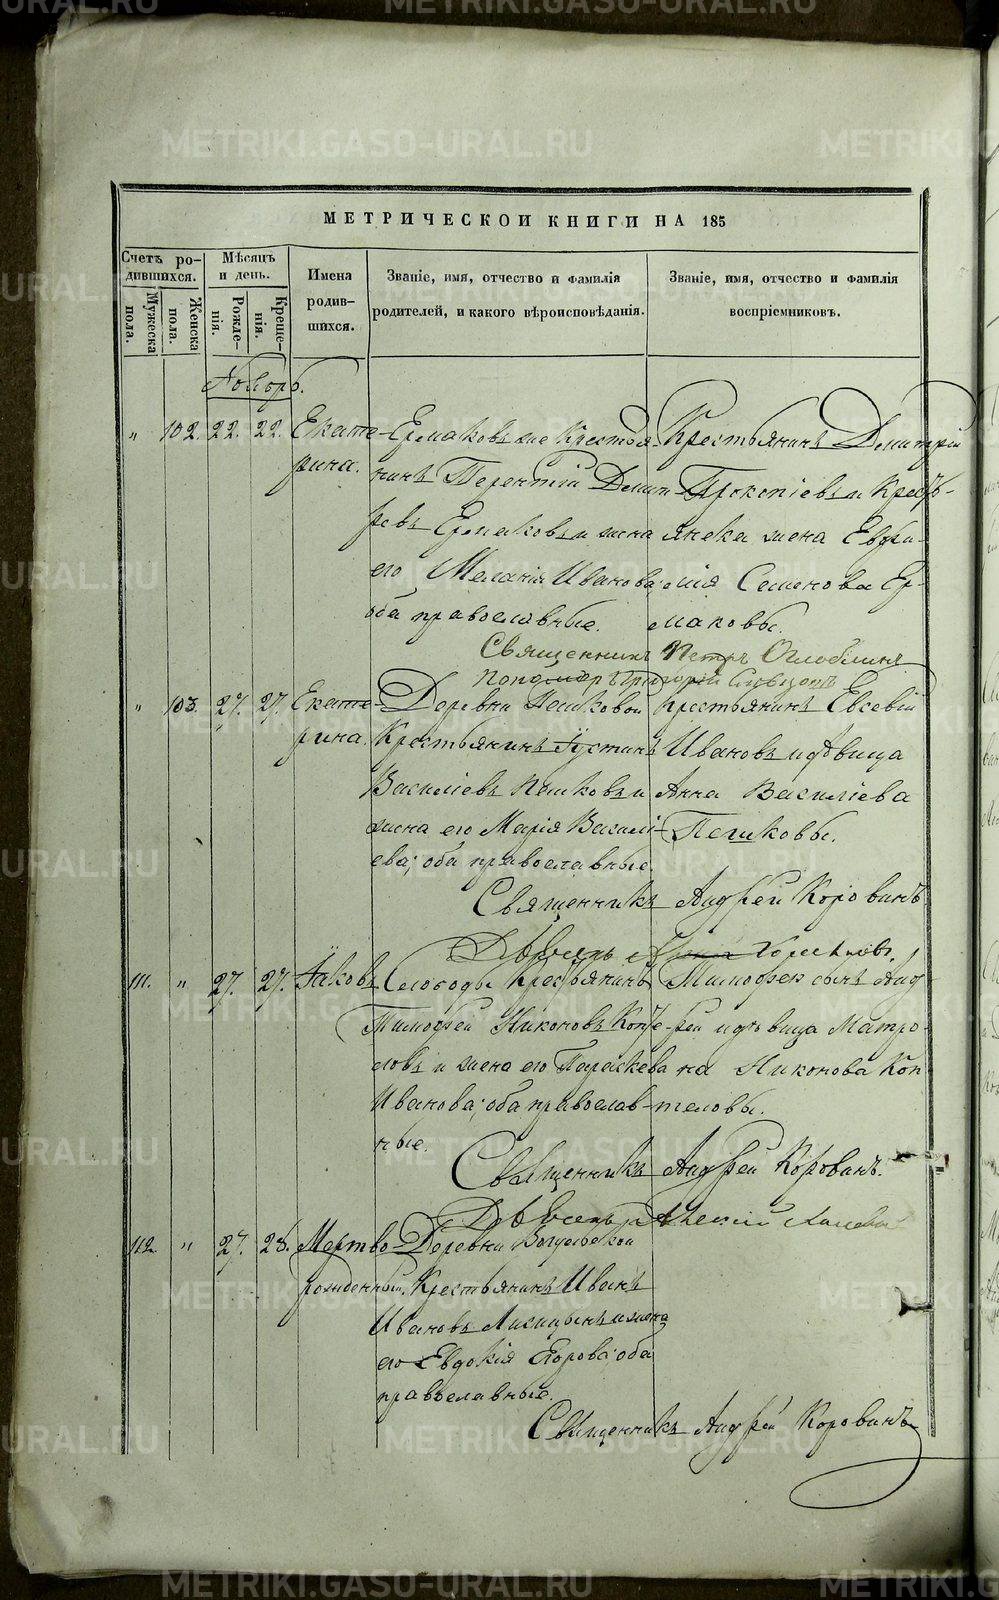 METRIKI.GASO-URAL.RU
МЕТРИЧЕСКОИ КНИГИ НА 185
Счетъ родившихся.
Мужеска пола.
Женска пола.
Мѣсяцъ и день.
Рожденія.
Крещенія.
Имена родившихся.
Званіе, имя, отчество и фамилія родителей, и какого вѣроисповѣданія.
Званіе, имя, отчество и фамилія воспріемниковъ.
Ноябрь.
" 102. 22. 22. Екате-
рина.
Ермаковъ же Крестья-
нинъ Терентій Дмит
ревъ Ермаковъ и жена
его Меланія Иванова
оба православные.
Крестьянинъ Димитрій
Прокопіевъ и Кресть-
янска жена Евфи-
мія Семенова Ер-
маковы.
Священникъ Петръ Оглоблинъ
Пономарь Григорій
" 103. 27. 27. Екате-
рина.
Деревни Пешковой
Крестьянинъ Іустинъ
Василіевъ Пешковъ и
жена его Марія Василі-
ева; оба православные.
Крестьянинъ Евсевій
Ивановъ и дѣвица
Анна Василіева
Пешковы.
Священникъ Андрей Корованъ
111. " 27. 27. Іаковъ
Слободы Крестьянинъ
Тимофей Никоновъ Копте-
ловъ и жена его Параскева
Иванова; оба православ-
ные.
Тимофея сынъ Анд
рей и дѣвица Матро-
на Никонова Коп
теловы.
Священникъ Андрей Корованъ.
112. " 27. 28. Мертво-
рожденный.
Деревни Вогульской
Крестьянинъ Иванъ
Ивановъ и жена
его Евдокія Егорова; оба
православные.
Священникъ Андрей Корованъ